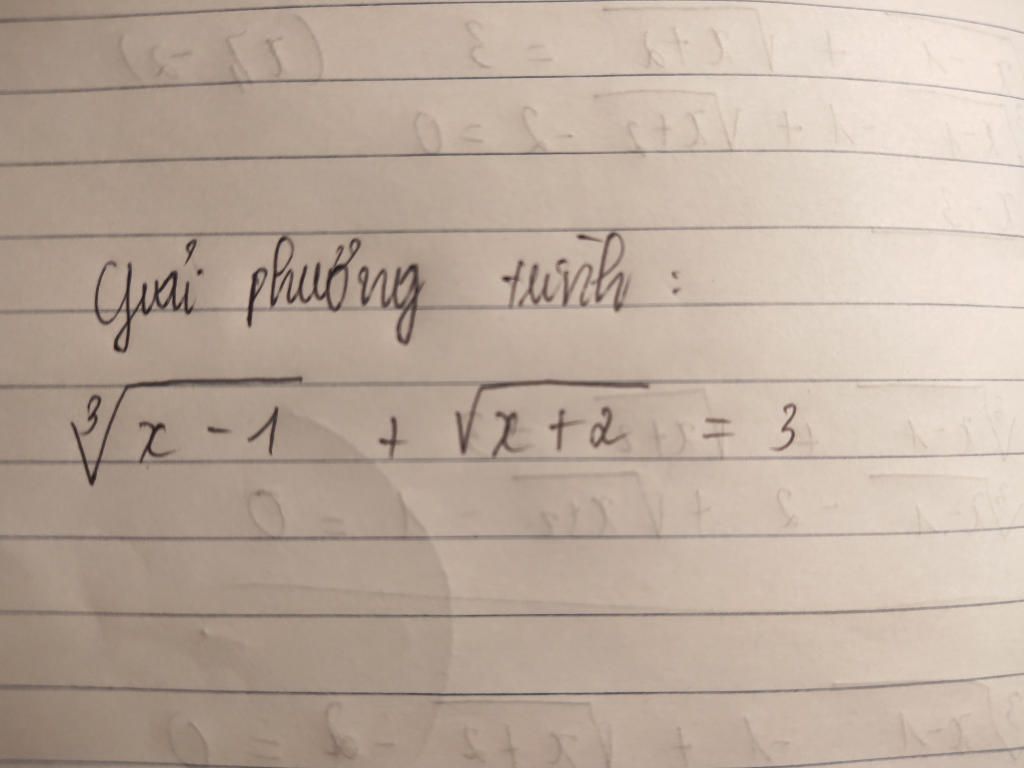 Giải phương trình :
∛(x - 1) + √(x + 2) = 3